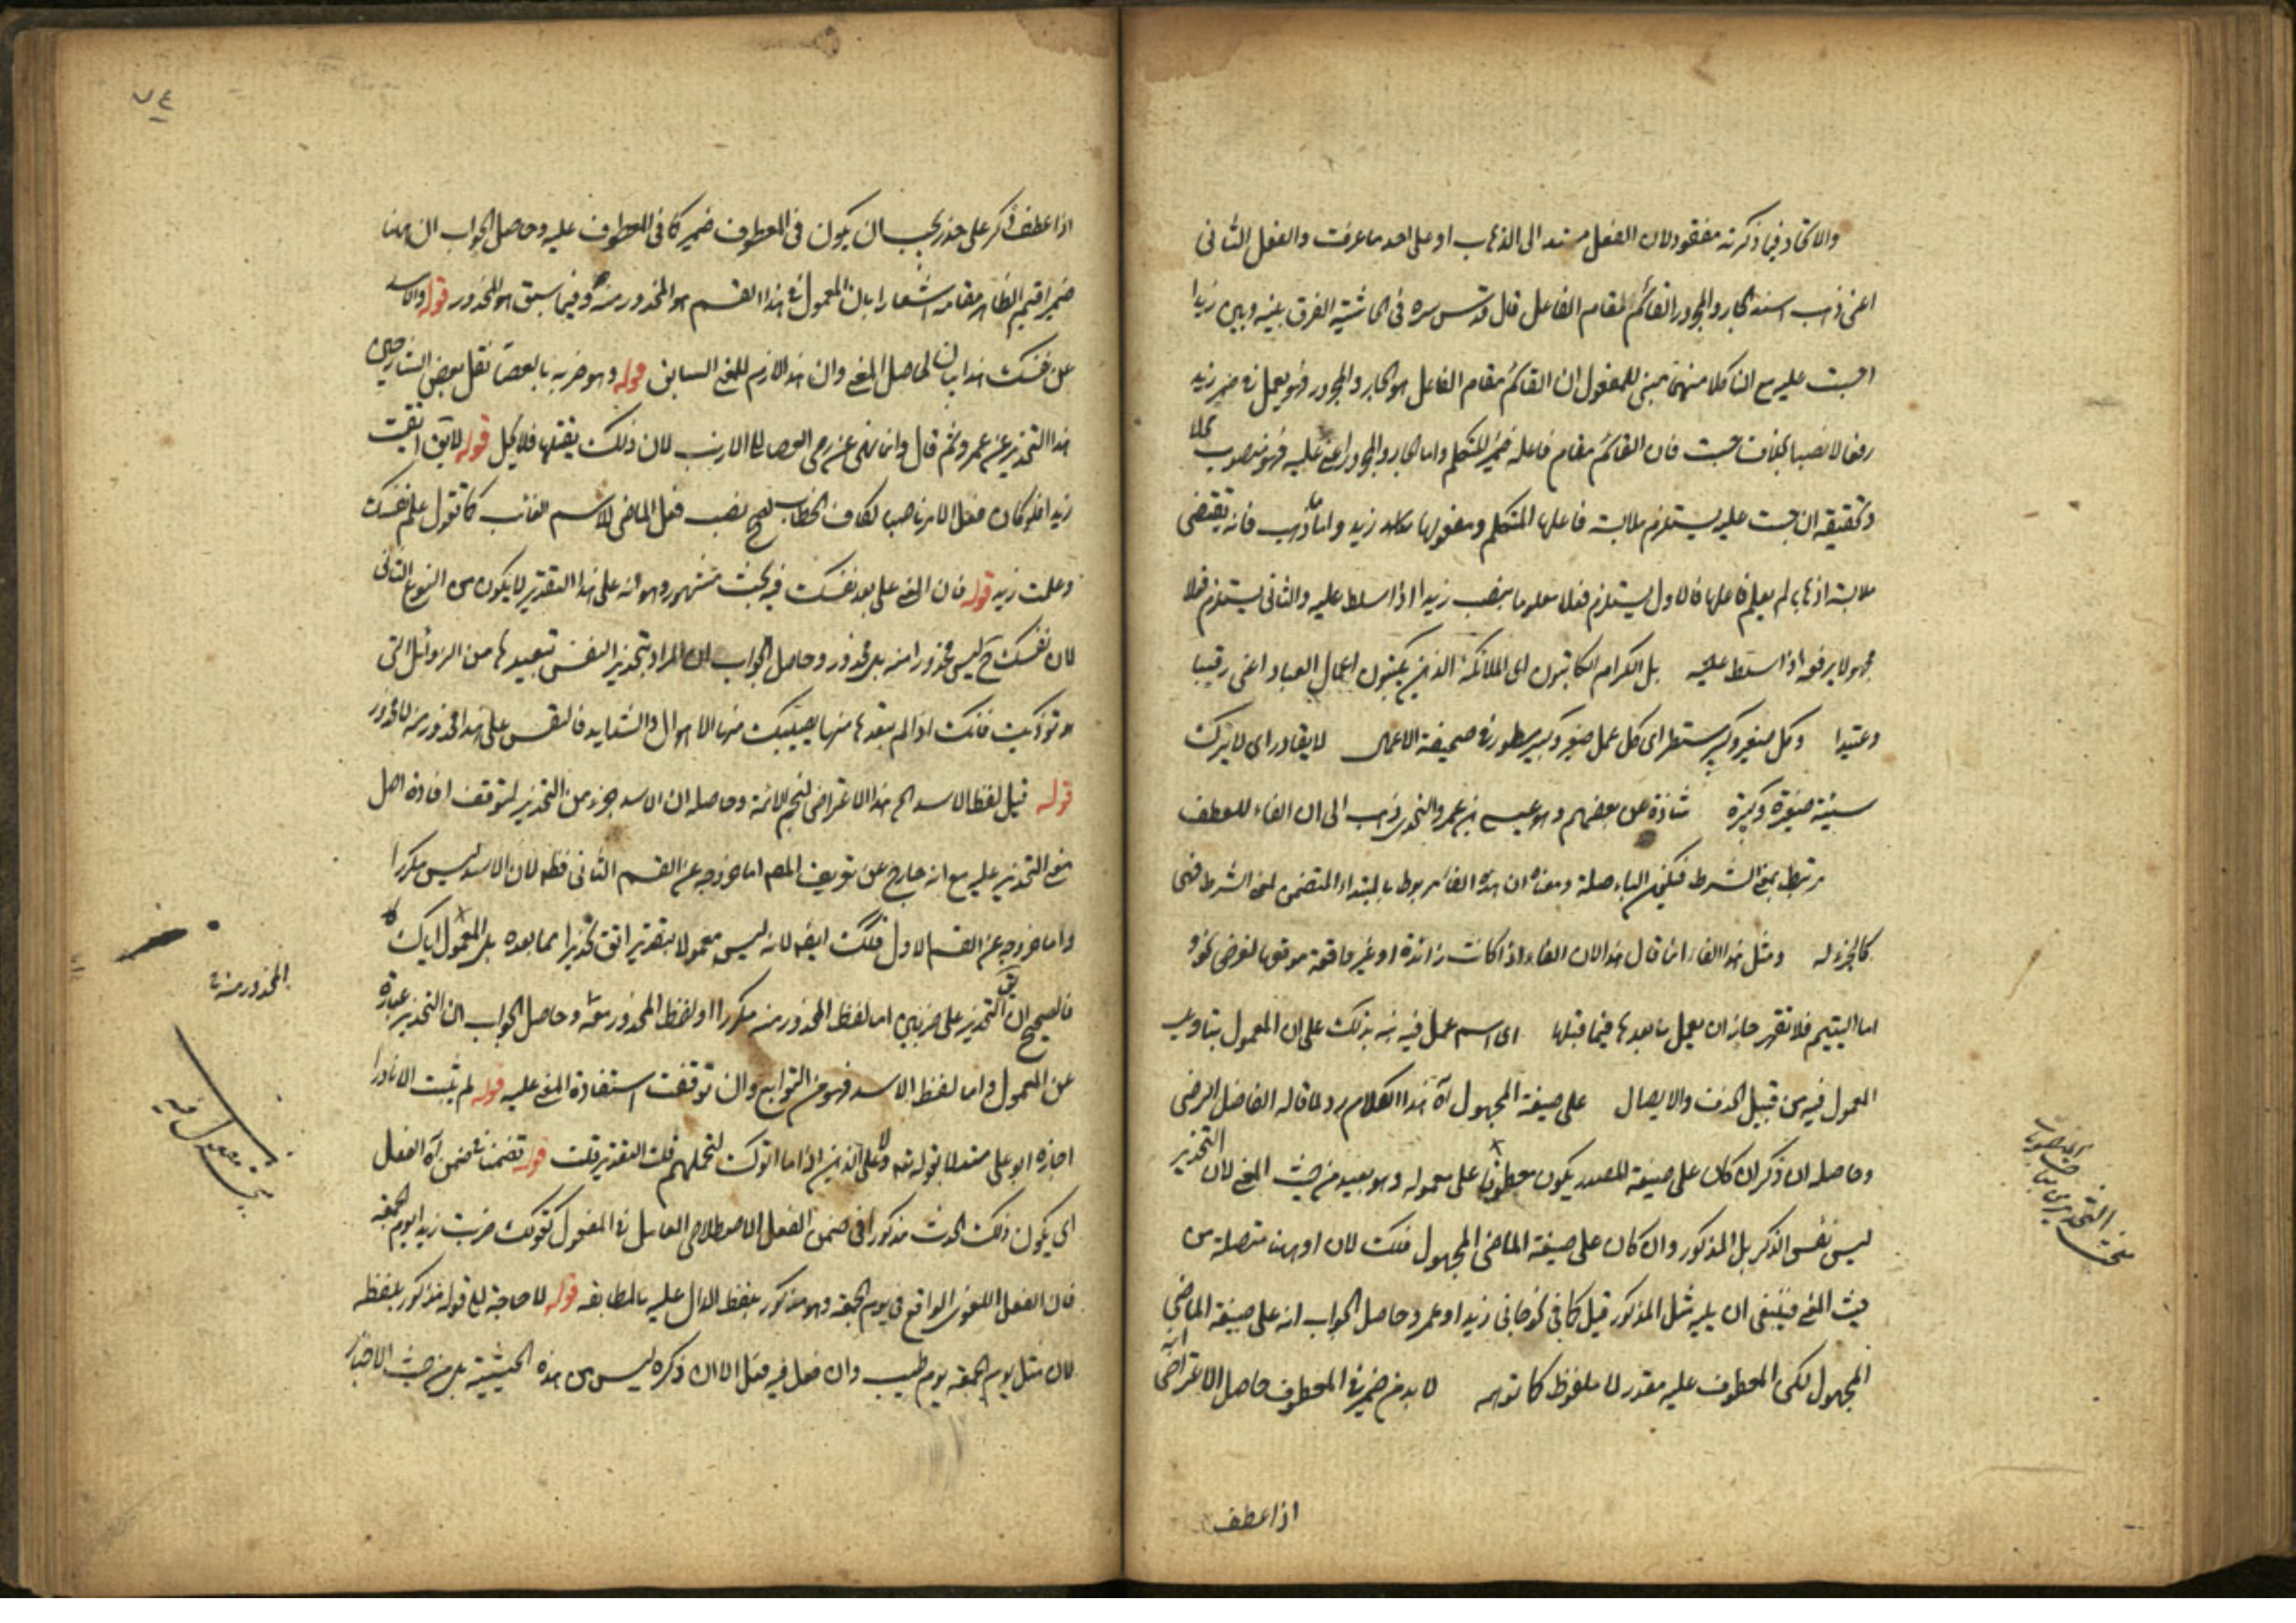 والاتحاد فيما ذكرته مفقود لان الفعل مسند الى الذهاب او على احد ما عرفت والفعل الثانى
اعنى ذهب اسند الجار والمجرور القائم مقام الفاعل قال قدس سره فى الحاشية الفرق بينه وبين زيدا
حبست عليه مع ان كلا منهما مبنى للمفعول ان القائم مقام الفاعل هو الجار والمجرور فهو يعمل فى ضمير زيد
رفعا لا نصبا بخلاف حبست فان القائم مقام فاعله ضمير المتكلم واما الجار والمجرور اعنى عليه فهو منصوب محلا
وتحقيقه ان حبست عليه يستلزم ملابسة فاعلها المتكلم ومفعولها زيد واما ذهب فانه يقتضى
ملابسة اذهاب لم يعلم فاعلها فالاول يستلزم فعلا معلوما ينصب زيدا اذا سلط عليه والثانى يستلزم فعلا
مجهولا يرفعه اذا سلط عليه بل الكرام الكاتبون اى الملائكة الذين يكتبون اعمال العباد اعنى رقيبا
وعتيدا وكل صغير وكبير مستطر اى كل عمل صغير وكبير مسطور فى صحيفة الاعمال لا يغادر اى لا يترك
سيئة صغيرة وكبيرة شاذة عن بعضهم وهو عيسى بن عمر والنحوى ذهب الى ان الفاء للعطف
مرتبط بمعنى الشرط فيكون الباء صلة ومعناه ان هذه الفاء مربوط بالمبتداء المتضمن لمعنى الشرط فهى
كالجزء له ومثل هذا الفاء انما قال هذا لان الفاء اذا كانت زائدة او غير واقعة موقعها لغرض نحو
اما اليتيم فلا تقهر جاز ان يعمل ما بعدها فيما قبلها اى اسم عمل فيه نبه بذلك على ان المعمول بتاويل
المعمول فيه من قبيل الحذف والايصال على صيغة المجهول آه هذا الكلام رد لما قاله الفاضل الرضى
وحاصله ان ذكر ان كان على صيغة المصدر يكون معطوفا على معموله وهو بعيد من حيث المعنى لان التحذير
ليس نفس الذكر بل المذكور وان كان على صيغة الماضى المجهول فكذلك لان او ههنا متصلة من
حيث المعنى فينبغى ان يليه مثل المذكور قبل كما فى نحو جاءنى زيد او عمر وحاصل الجواب انه على صيغة الماضى
المجهول لكن المعطوف عليه مقدر لا ملفوظ كما توهم لا بد من ضمير فى المعطوف حاصل الاعتراض انه
اذا عطف
٧٤
اذا عطف ذكر على حذر يجب ان يكون فى المعطوف ضمير كما فى المعطوف عليه وحاصل الجواب ان ههنا
ضمير اقيم الظاهر مقامه اشعارا بان المعمول فى هذا القسم هو المحذور منه وفيما سبق هو المحذور قوله والاسد
عن نفسك هذا بيان لحاصل المعنى وان هذا لازم للمعنى السابق قوله وهو ضربه بالعصا نقل بعض الشارحين
هذا التحذير عن عمر وثم قال وانما نهى عن رمى العصا الى الارنب لان ذلك يقتلها فلا يحل قوله لا يق اتقيت
زيدا فلو كان فعل الامر ناصبا لكاف الخطاب لصح نصب فعل الماضى لاسم الغائب كما تقول علم نفسك
وعلمت زيد قوله فان المعنى على بعد نفسك فيه بحث مشهور وهو انه على هذا التقدير لا يكون من النوع الثانى
لان نفسك ح ليس محذورا منه بل محذور وحاصل الجواب ان المراد بتحذير النفس تبعيدها من الرذائل التى
توذيك فانك اذا لم تبعدها منها يصيبك منها الاهوال والشدايد فالنفس على هذا محذور منه لا محذور
قوله قيل لفظ الاسد الخ هذا الاعتراض لنجم الائمة وحاصله ان الاسد جزء من التحذير لتوقف افادة اصل
معنى التحذير عليه مع انه خارج عن تعريف المص اما خروجه عن القسم الثانى فظ لان الاسد ليس مكررا
واما خروجه عن القسم الاول فكذلك ايضا لانه ليس معمولا بتقدير اتق تحذيرا مما بعده بل المعمول اياك
فالصحيح ان يق التحذير على ضربين اما لفظ المحذور منه مكررا او لفظ المحذور معه وحاصل الجواب ان التحذير عبارة
عن المعمول واما لفظ الاسد فهو من التوابع وان توقفت استفادة المعنى عليه قوله لم يثبت الا نادرا
اجازه ابو على مستدلا بقوله تع ولا على الذين اذا ما اتوك لتحملهم قلت التقدير قلت قوله تضمنا فى ضمن آه الفعل
اى يكون ذلك الحدث مذكورا فى ضمن الفعل الاصطلاحى العامل فى المفعول كقولك ضربت زيدا يوم الجمعة
فان الفعل اللغوى الواقع فى يوم الجمعة وهو مذكور بلفظ الدال عليه بالمطابقة قوله لا حاجة الى قوله مذكور بلفظه
لان مثل يوم الجمعة يوم طيب وان فعل فيه فعل الا ان ذكره ليس من هذه الحيثية بل من حيث الاخبار
المحذور منه